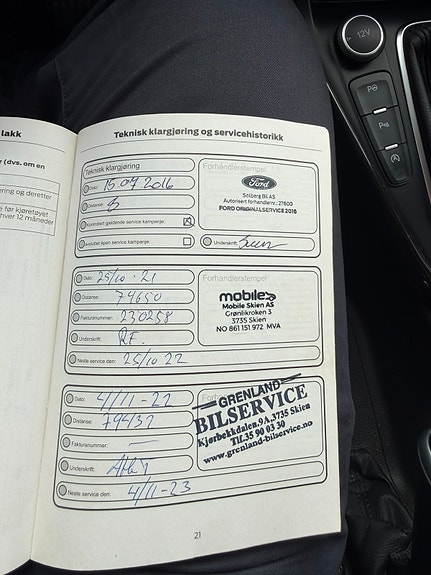 lakk
r (dvs. om en
ring og deretter
e før kjøretøyet
hver 12 måneder
Teknisk klargjøring og servicehistorikk
Teknisk klargjøring
Dato: 15 09 2016
Distanse:
Kontrollert gjeldende service kampanje:
avsluttet åpen service kampanje:
Forhandlerstempel
Ford
Solberg Bil AS
Autorisert forhandlernr.: 21600
FORD ORIGINALSERVICE 2016
Underskrift:
Dato: 25/10 · 21
Distanse: 74650
Fakturanummer: 230258
Underskrift: RF.
Neste service den: 25/10 22
Forhandlerstempel
mobile
Mobile Skien AS
Grønlikroken 3
3735 Skien
NO 861 151 972 MVA
Dato: 4/11-22
Distanse: 79437
Fakturanummer: —
Underskrift:
Neste service den: 4/11-23
GRENLAND
BILSERVICE
Kjørbekkdalen 9A, 3735 Skien
Tlf. 35 90 03 30
www.grenland-bilservice.no
21
12V
P
P
A